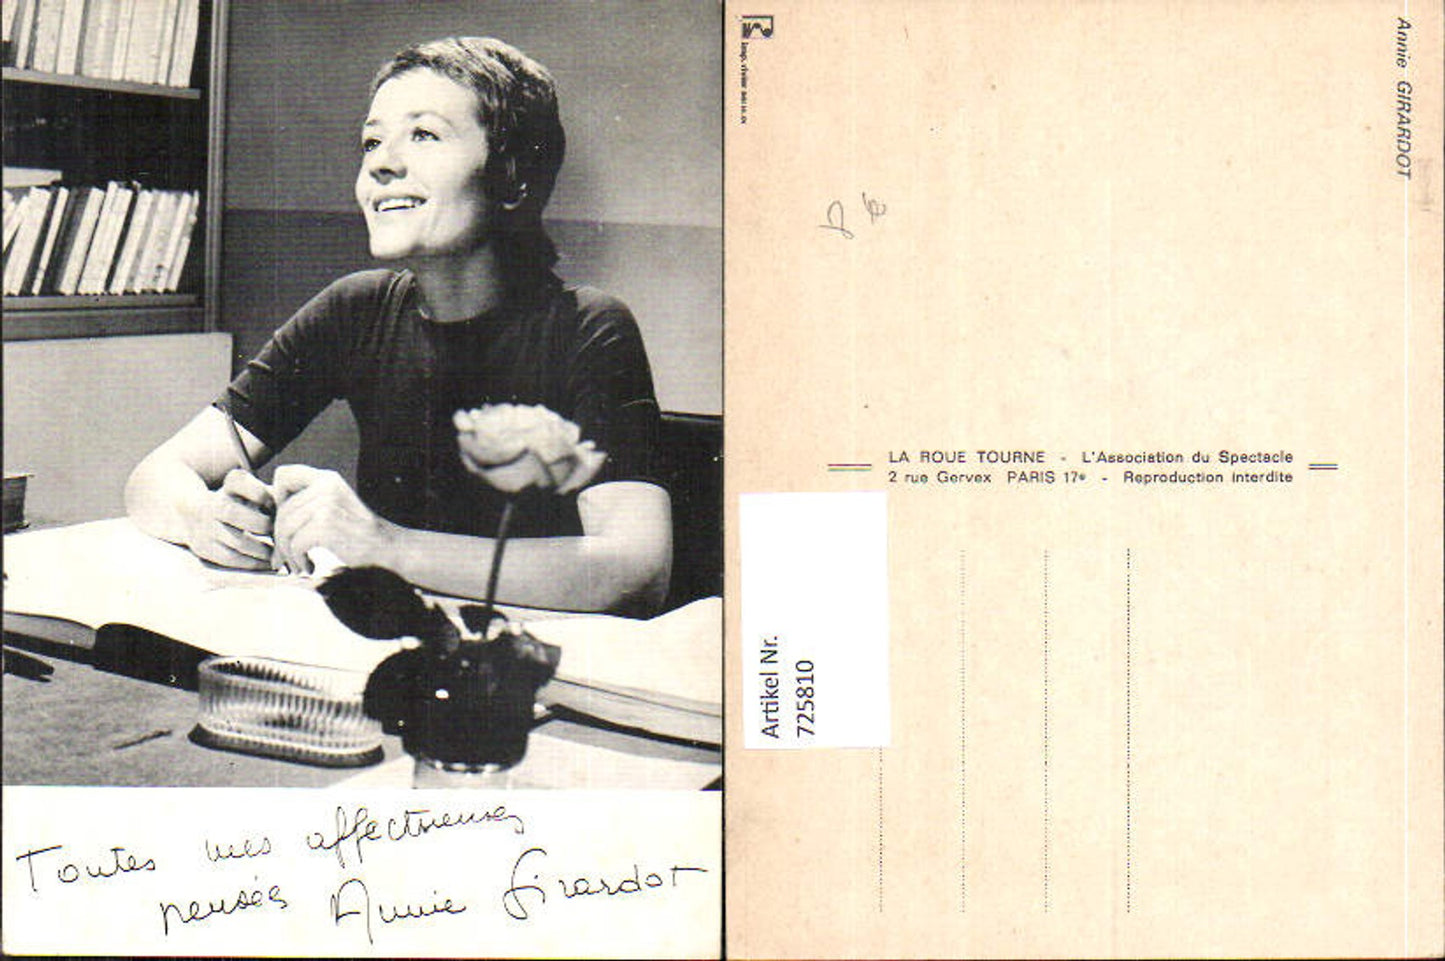 Toutes mes affectueuses
pensées Annie Girardot
Annie GIRARDOT
LA ROUE TOURNE - L'Association du Spectacle
2 rue Gervex PARIS 17e - Reproduction interdite
Artikel Nr.
725810